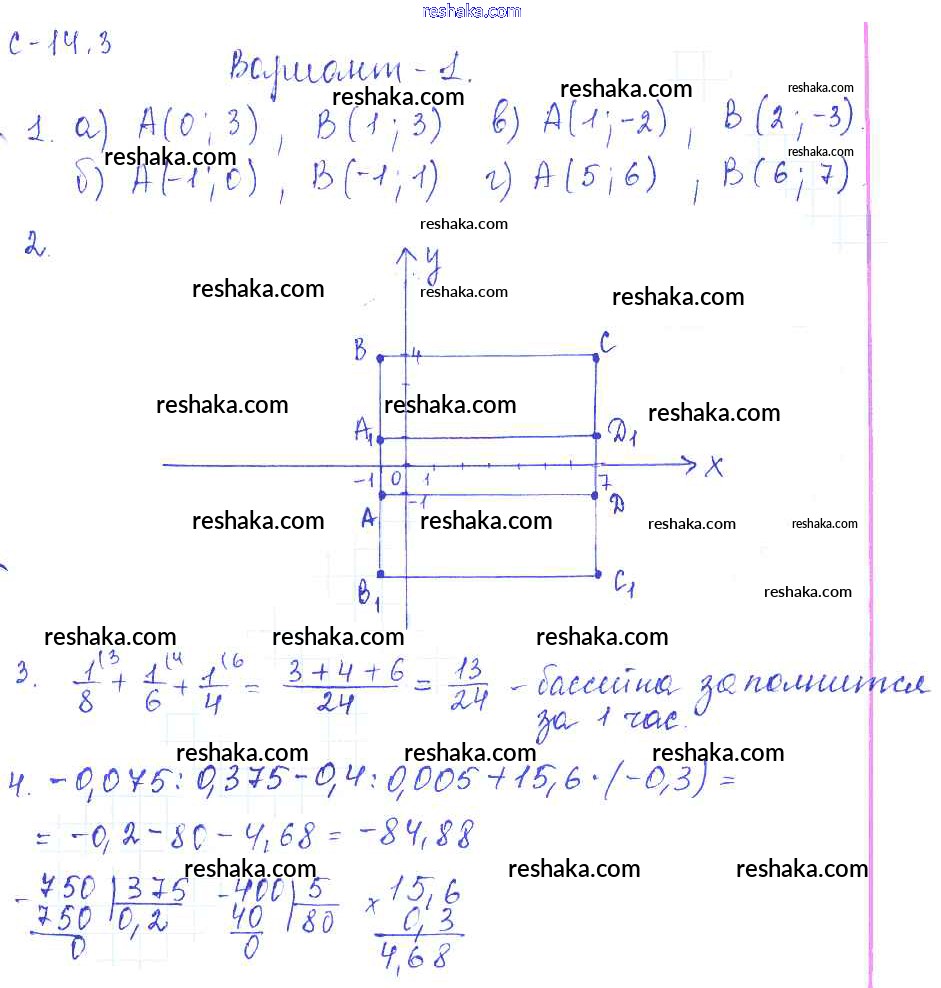 reshaka.com
С-14.3
Вариант-1.
reshaka.com reshaka.com reshaka.com
1. а) A(0; 3), B(1; 3) в) A(1; -2), B(2; -3).
reshaka.com reshaka.com
б) A(-1; 0), B(-1; 1) г) A(5; 6), B(6; 7).
reshaka.com
2.
y
reshaka.com reshaka.com reshaka.com
B 4 C
reshaka.com reshaka.com reshaka.com
A1 D1
-1 0 1 7 x
-1
A D
reshaka.com reshaka.com reshaka.com reshaka.com
B1 C1
reshaka.com
reshaka.com reshaka.com reshaka.com
3. 1(3/8 + 1(4/6 + 1(6/4 = 3+4+6/24 = 13/24 - бассейна заполнится
за 1 час.
reshaka.com reshaka.com reshaka.com
4. -0,075 : 0,375 - 0,4 : 0,005 + 15,6 · (-0,3) =
= -0,2 - 80 - 4,68 = -84,88
reshaka.com reshaka.com reshaka.com
- 750 | 375 - 400 | 5 × 15,6
750 | 0,2 40 | 80 0,3
0 0 4,68